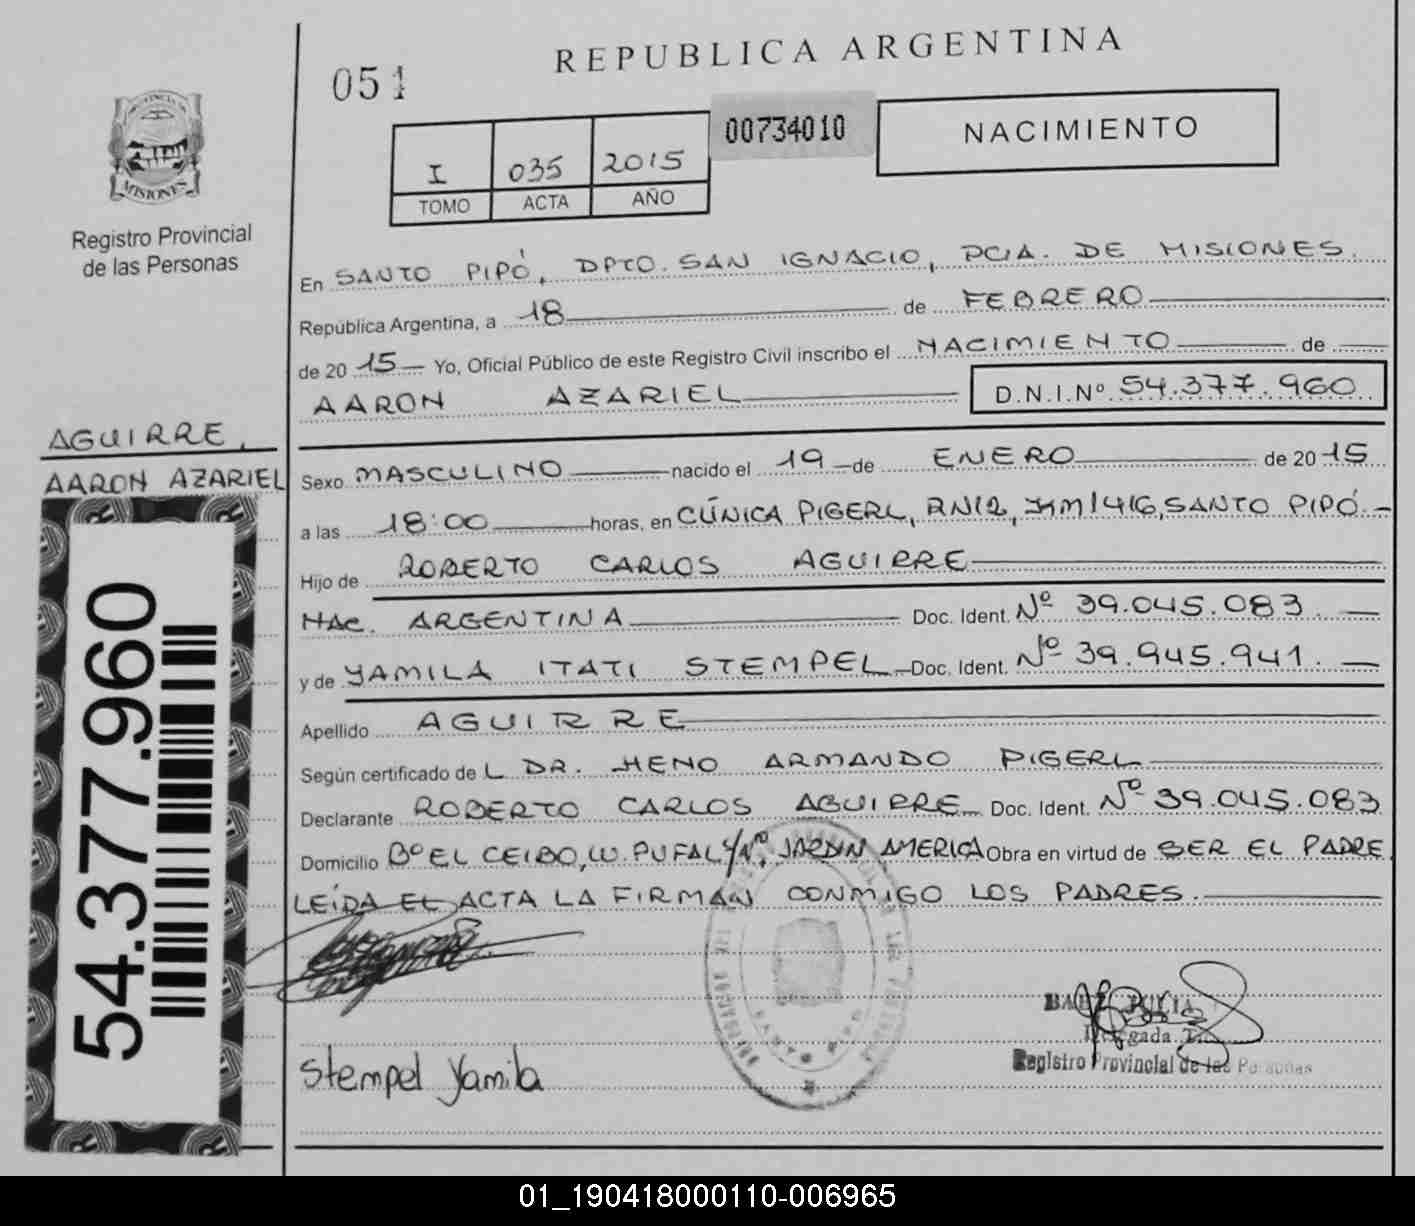 051
REPUBLICA ARGENTINA
00734010
NACIMIENTO
I 035 2015
TOMO ACTA AÑO
PROVINCIA DE
MISIONES
Registro Provincial
de las Personas
En SANTO PIPÓ, DPTO. SAN IGNACIO, PCIA. DE MISIONES.
República Argentina, a 18 de FEBRERO
de 20 15 Yo, Oficial Público de este Registro Civil inscribo el NACIMIENTO de
AARON AZARIEL D.N.I.Nº 54.377.960
AGUIRRE,
AARON AZARIEL
Sexo MASCULINO nacido el 19 de ENERO de 20 15
a las 18:00 horas, en CLÍNICA PIGERL, RN12, KM1416, SANTO PIPÓ.-
Hijo de ROBERTO CARLOS AGUIRRE
NAC. ARGENTINA Doc. Ident. Nº 39.045.083.
y de YAMILA ITATI STEMPEL Doc. Ident. Nº 39.945.941.
Apellido AGUIRRE
Según certificado de L DR. HENO ARMANDO PIGERL
Declarante ROBERTO CARLOS AGUIRRE Doc. Ident. Nº 39.045.083
Domicilio Bº EL CEIBO, W. PUFAL S/Nº, JARDIN AMERICA Obra en virtud de SER EL PADRE.
LEÍDA EL ACTA LA FIRMAN CONMIGO LOS PADRES.
54.377.960
Stempel Yamila
Delegada
Registro Provincial de las Personas
01_190418000110-006965